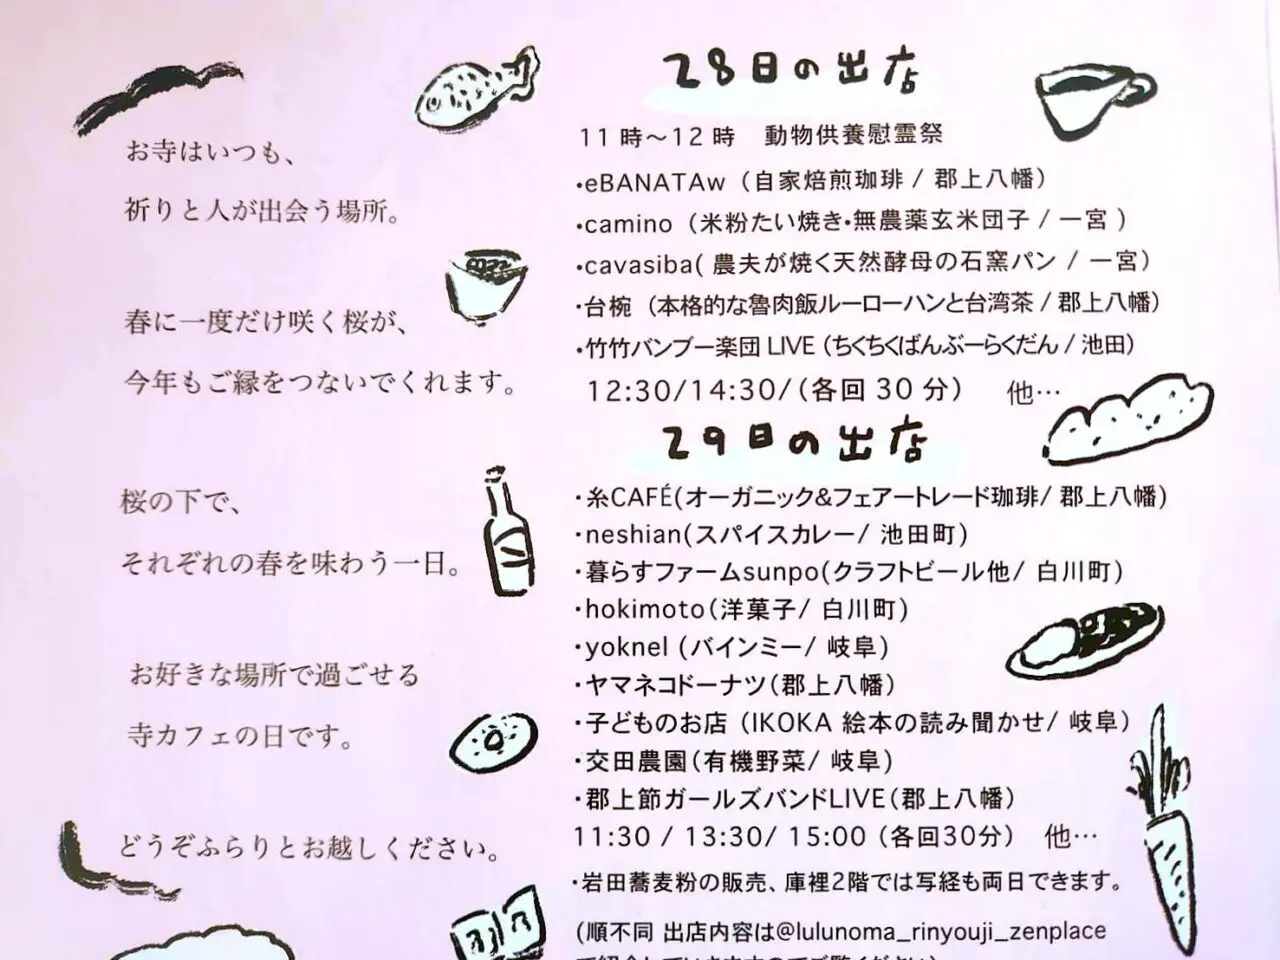 お寺はいつも、
祈りと人が出会う場所。
春に一度だけ咲く桜が、
今年もご縁をつないでくれます。
桜の下で、
それぞれの春を味わう一日。
お好きな場所で過ごせる
寺カフェの日です。
どうぞふらりとお越しください。
28日の出店
11時〜12時　動物供養慰霊祭
・eBANATAw（自家焙煎珈琲 / 郡上八幡）
・camino（米粉たい焼き・無農薬玄米団子 / 一宮 ）
・cavasiba( 農夫が焼く天然酵母の石窯パン / 一宮）
・台椀（本格的な魯肉飯ルーローハンと台湾茶 / 郡上八幡）
・竹竹バンブー楽団 LIVE（ちくちくばんぶーらくだん / 池田）
12:30/14:30/（各回 30 分）　他…
29日の出店
・糸CAFÉ(オーガニック&フェアートレード珈琲/ 郡上八幡)
・neshian(スパイスカレー/ 池田町)
・暮らすファームsunpo(クラフトビール他/ 白川町)
・hokimoto(洋菓子/ 白川町)
・yoknel (バインミー/ 岐阜)
・ヤマネコドーナツ(郡上八幡)
・子どものお店（IKOKA 絵本の読み聞かせ/ 岐阜）
・交田農園(有機野菜/ 岐阜)
・郡上節ガールズバンドLIVE（郡上八幡）
11:30 / 13:30/ 15:00（各回30分）　他…
・岩田蕎麦粉の販売、庫裡2階では写経も両日できます。
(順不同 出店内容は@lulunoma_rinyouji_zenplace
で紹介していますのでご覧ください)